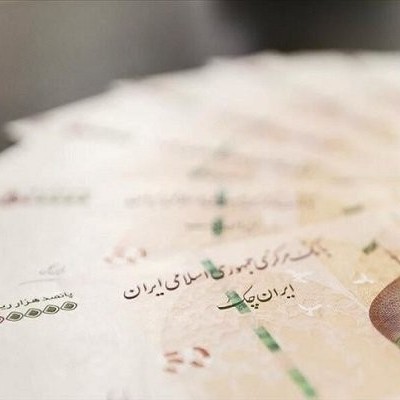 بانک مرکزی جمهوری اسلامی ایران
ایران چک
پانصد هزار ریا